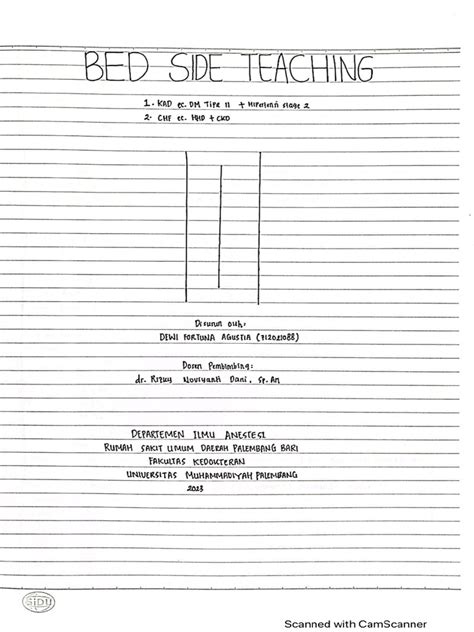 BED SIDE TEACHING
1. KAD ec. DM Tipe II + Hipertensi stage 2
2. CHF ec. HHD + CKD
Disusun oleh:
DEWI FORTUNA AGUSTIA (712021088)
Dosen Pembimbing:
dr. Rizky Noviyanti Dani, Sp.An
DEPARTEMEN ILMU ANESTESI
RUMAH SAKIT UMUM DAERAH PALEMBANG BARI
FAKULTAS KEDOKTERAN
UNIVERSITAS MUHAMMADIYAH PALEMBANG
2023
SiDU
Scanned with CamScanner